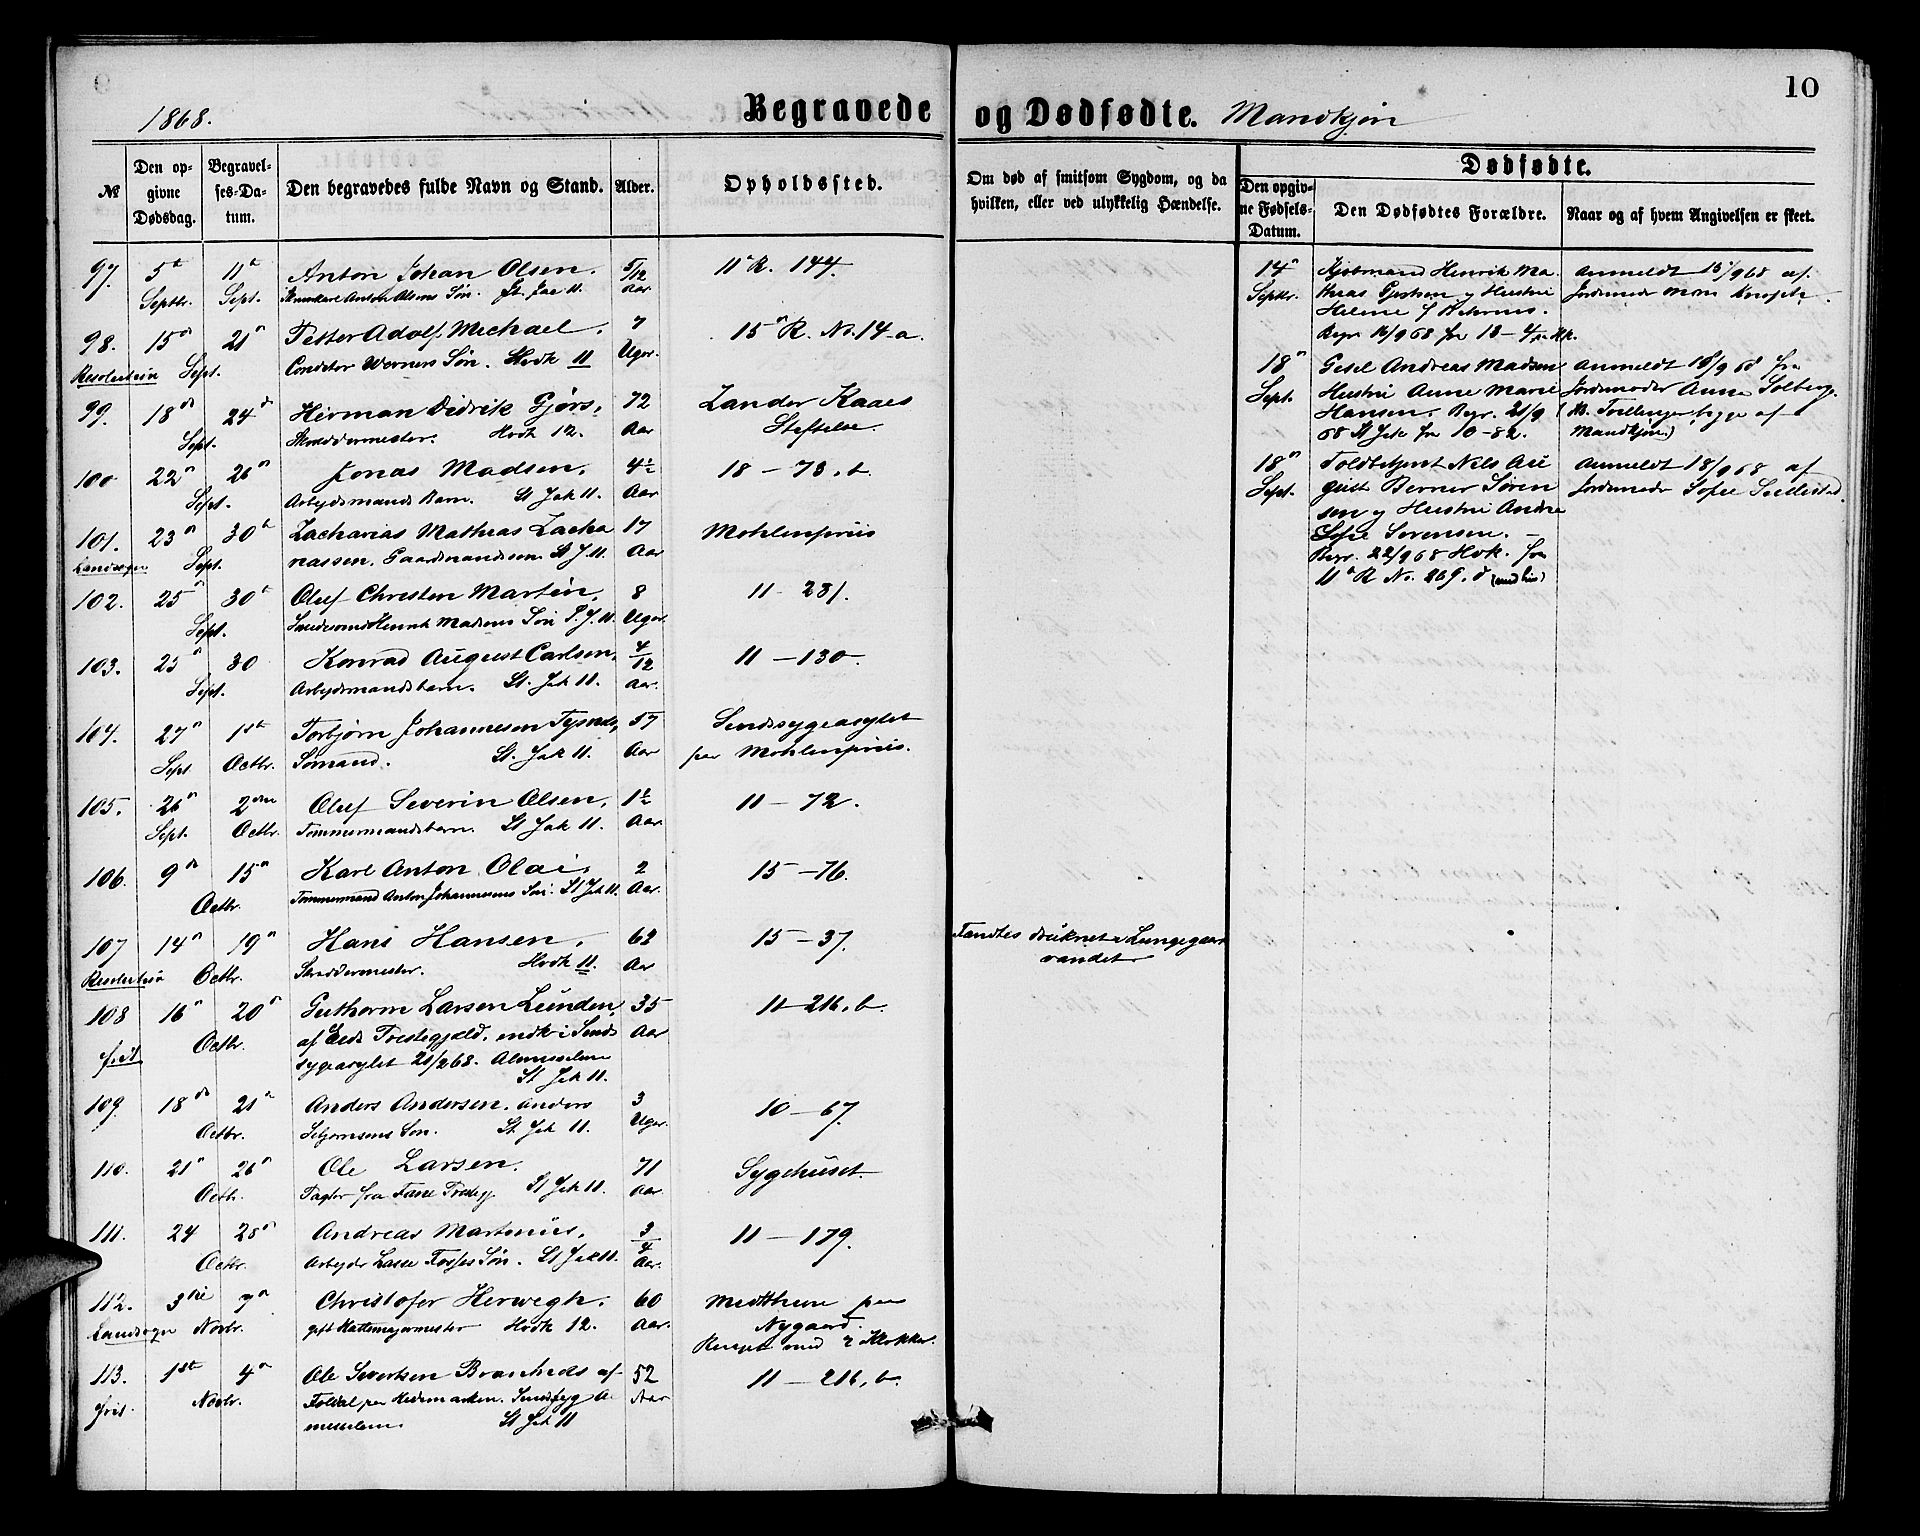 10
1868.
Begravede og Dødfødte. Mandkjøn
№
Den opgivne Dødsdag.
Begravelses-Datum.
Den begravedes fulde Navn og Stand.
Alder.
Opholdssted.
Om død af smitsom Sygdom, og da hvilken, eller ved ulykkelig Hændelse.
Dødfødte.
Den opgivne Fødsels-Datum.
Den Dødfødtes Forældre.
Naar og af hvem Angivelsen er skeet.
97. 5te 11te Anton Johan Olsen. 5/12 11te R. 144.
Septbr. Sept. Anton Olsens Søn. St. Jac 11. Aar
98. 15de 21de Petter Adolf Michael. 7 15de R. No. 14-a.
Sept. Conditor Werners Søn. Hvdk 11 Uger.
99. 18de 24de Herman Didrik Gjørs, 72 Zander Kaaes
Sept. Skræddermester. Hvdk 12. Aar Stiftelse.
100 22de 26de Jonas Madsen. 4½ 18 - 73. b.
Sept. Arbejdsmands Barn. St Jak 11. Aar
101. 23de 30te Zacharias Mathias Zacha 17 Mohlenpriis
Landsogn Sept. riassen. Gaardmandssøn St J. 11. Aar
102. 25de 30te Oluf Christen Martin, 8 11 - 281.
Sept. Henrik Madsens Søn St. J. 11. Uger.
103. 25de 30 Konrad August Carlsen, 4/12 11 - 130.
Sept. Arbejdsmandsbarn. St. Jak 11. Aar.
104. 27de 1ste Torbjørn Johannesen Tysnes, 57 Sindssygeasylet
Sept. Octbr. Sømand. St. Jak 11. Aar paa Mohlenpriis.
105. 26de 2den Oluf Severin Olsen, 1½ 11 - 72.
Sept. Octbr. Tømmermandsbarn. St Jak 11. Aar.
106. 9de 15de Karl Anton Olai, 2 15 - 76.
Octbr. Tømmermand Anton Johannesens Søn. St Jak 11. Aar.
107 14de 19de Hans Hansen, 62 15 - 37. Fandtes druknet i Lungegaards
Octbr. Skræddermester. Hvdk 11. Aar vandet
108 16de 20de Guthorm Larsen Lunden, 35 11 - 216. b.
Octbr. af Eids Prestegjæld, indk i Sinds Aar
frit sygeasylet 21/2 68. Almisselem
St Jak 11.
109. 18de 21de Anders Andersen. Anders 3 10 - 67.
Octbr. Søn. St. Jak 11. Uger.
110. 21de 26de Ole Larsen. 71 Sygehuset
Octbr. fra Fane Prestegj. St Jak 11. Aar.
111. 24 28de Andreas Martinius. 3/4 11 - 179.
Octbr. Arbejder Lasse Fosses Søn. St Jak 11. Aar.
112. 3die 7de Christofer Herwegh. 60 paa
Landsogn Novbr. gift Hattemagermester Hvdk 12. Aar. Nygaard.
med 2 Klokker.
113. 1ste 4de Ole Sivertsen af 52 11 - 216. b.
frit. Novbr. Foldal paa Hedemarken. Sindssyg Al Aar
misselem. St Jak 11
14de Kjøbmand Henrik Ma Anmeldt 15/9 68 af
Septbr. thias Gjertsen og Hustru Jordemoder
Helene f
Begr. 16/9 68 fra 18 - 4
18de Gesel Andreas Madsen Anmeldt 18/9 68 fra
Sept. Hustru Anne Marie Jordemoder Anne Solberg.
Hansen. Begr. 21/9
68 St Jak fra 10 - 82. Mandkjøn)
18de Toldbetjent Nils Au Anmeldt 18/9 68 af
Sept. gust Berner Søren Jordemoder Sofie
sen og Hustru Andrea
Sofie Sørensen.
Begr. 22/9 68 Hvk. fra
11te R No. 269. d